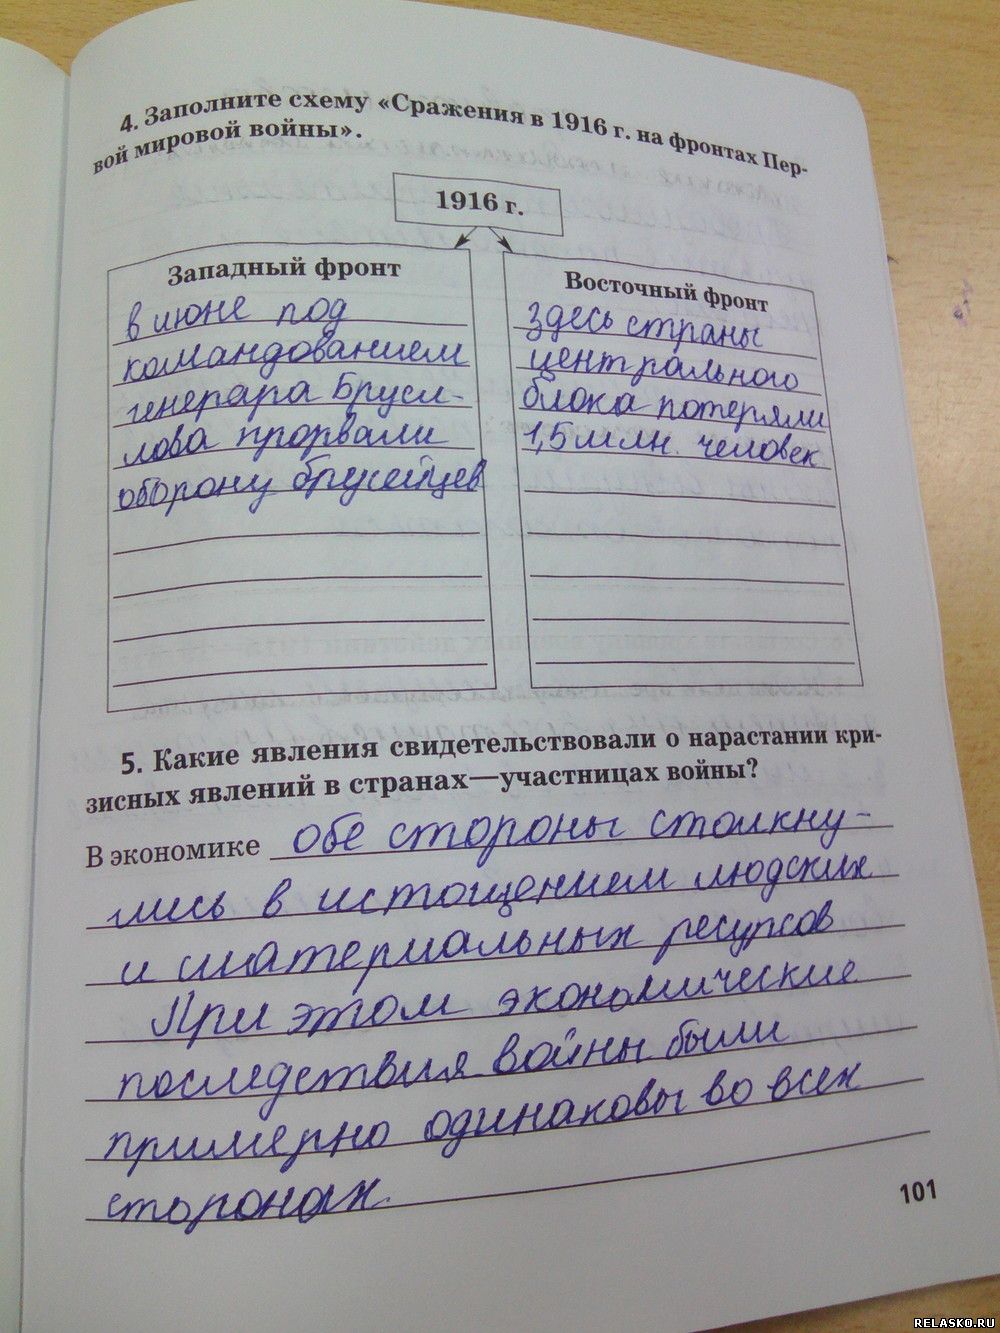 4. Заполните схему «Сражения в 1916 г. на фронтах Пер-
вой мировой войны».
1916 г.
Западный фронт
в июне под
командованием
генерара Брусл-
лова прорвали
оборону брусейцев
Восточный фронт
здесь страны
центрального
блока потеряли
1,5 млн. человек
5. Какие явления свидетельствовали о нарастании кри-
зисных явлений в странах—участницах войны?
В экономике обе стороны столкну-
лись в истощением людских
и материальных ресурсов
При этом экономические
последствия войны были
примерно одинаковы во всех
сторонах.
101
RELASKO.RU